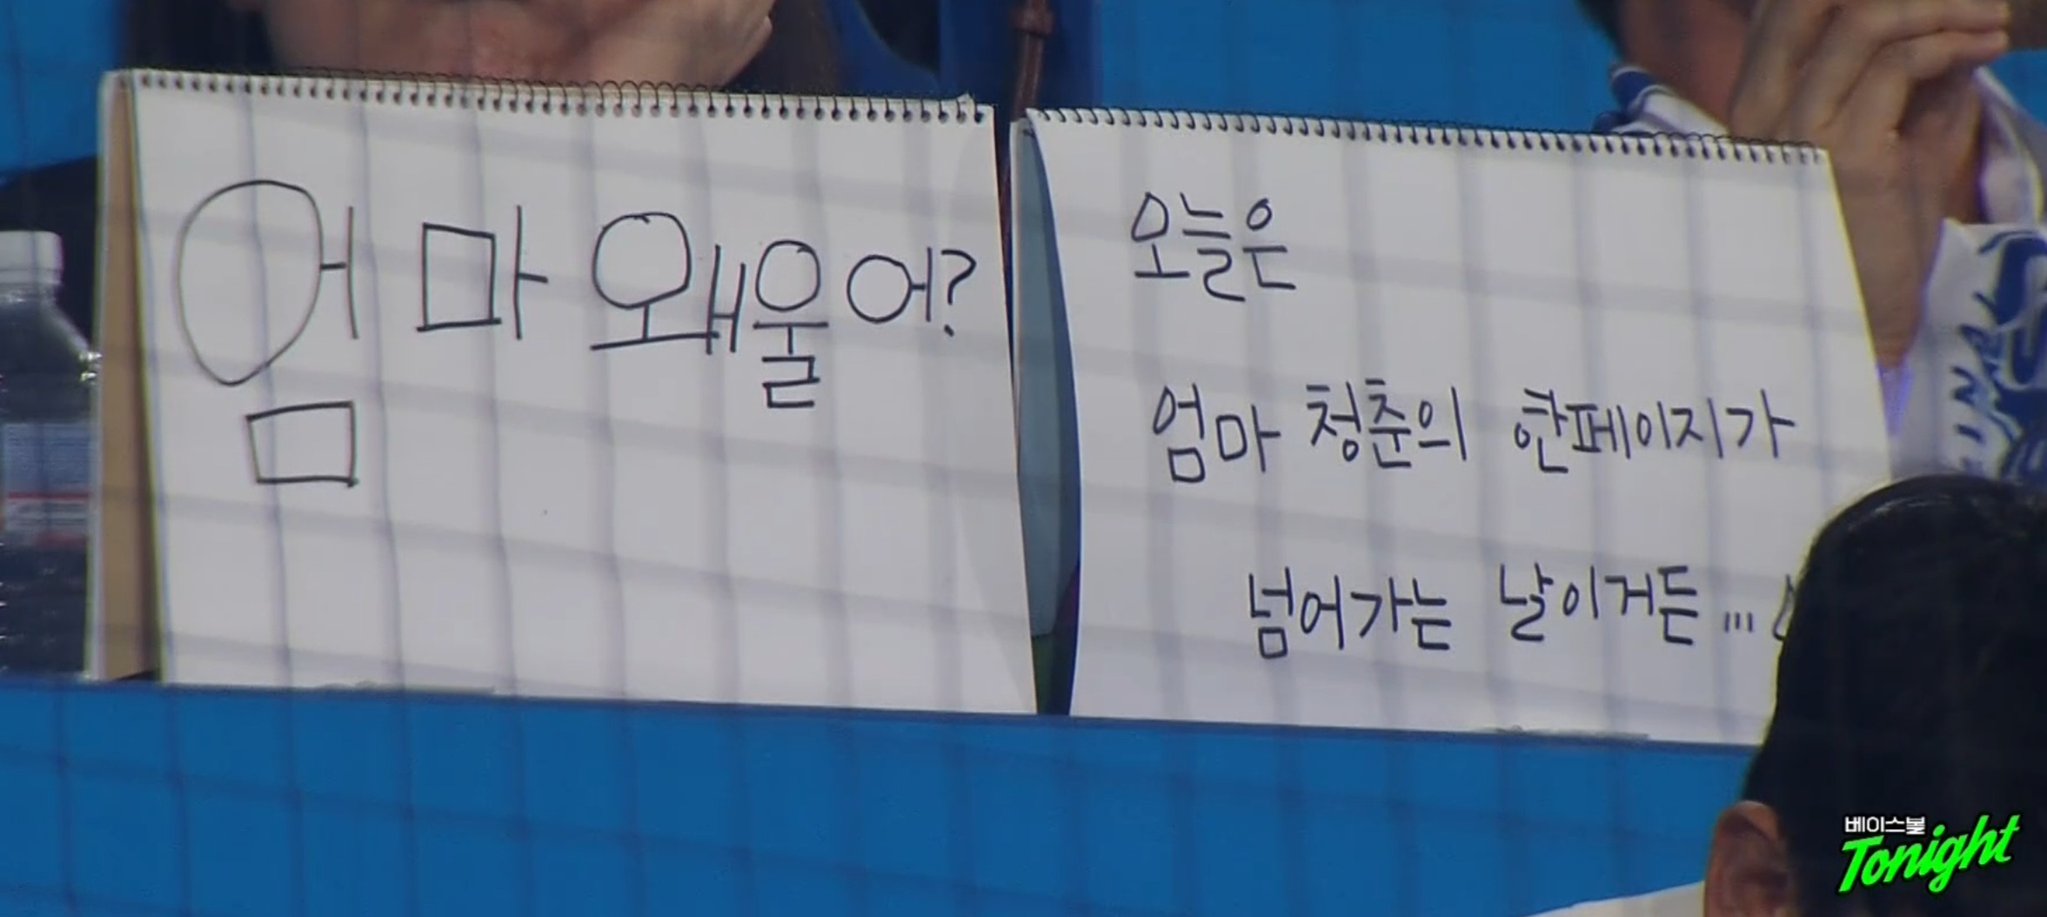 엄마 왜울어?
오늘은
엄마 청춘의 한페이지가
넘어가는 날이거든...
베이스볼
Tonight